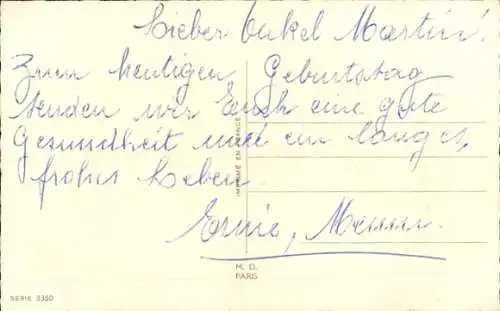 Lieber Onkel Martin!
Zum heutigen Geburtstag
senden wir Euch eine gute
Gesundheit und ein langes,
frohes Leben
Ernie,
IMPRIMÉ EN FRANCE
M. D.
PARIS
SERIE 3350